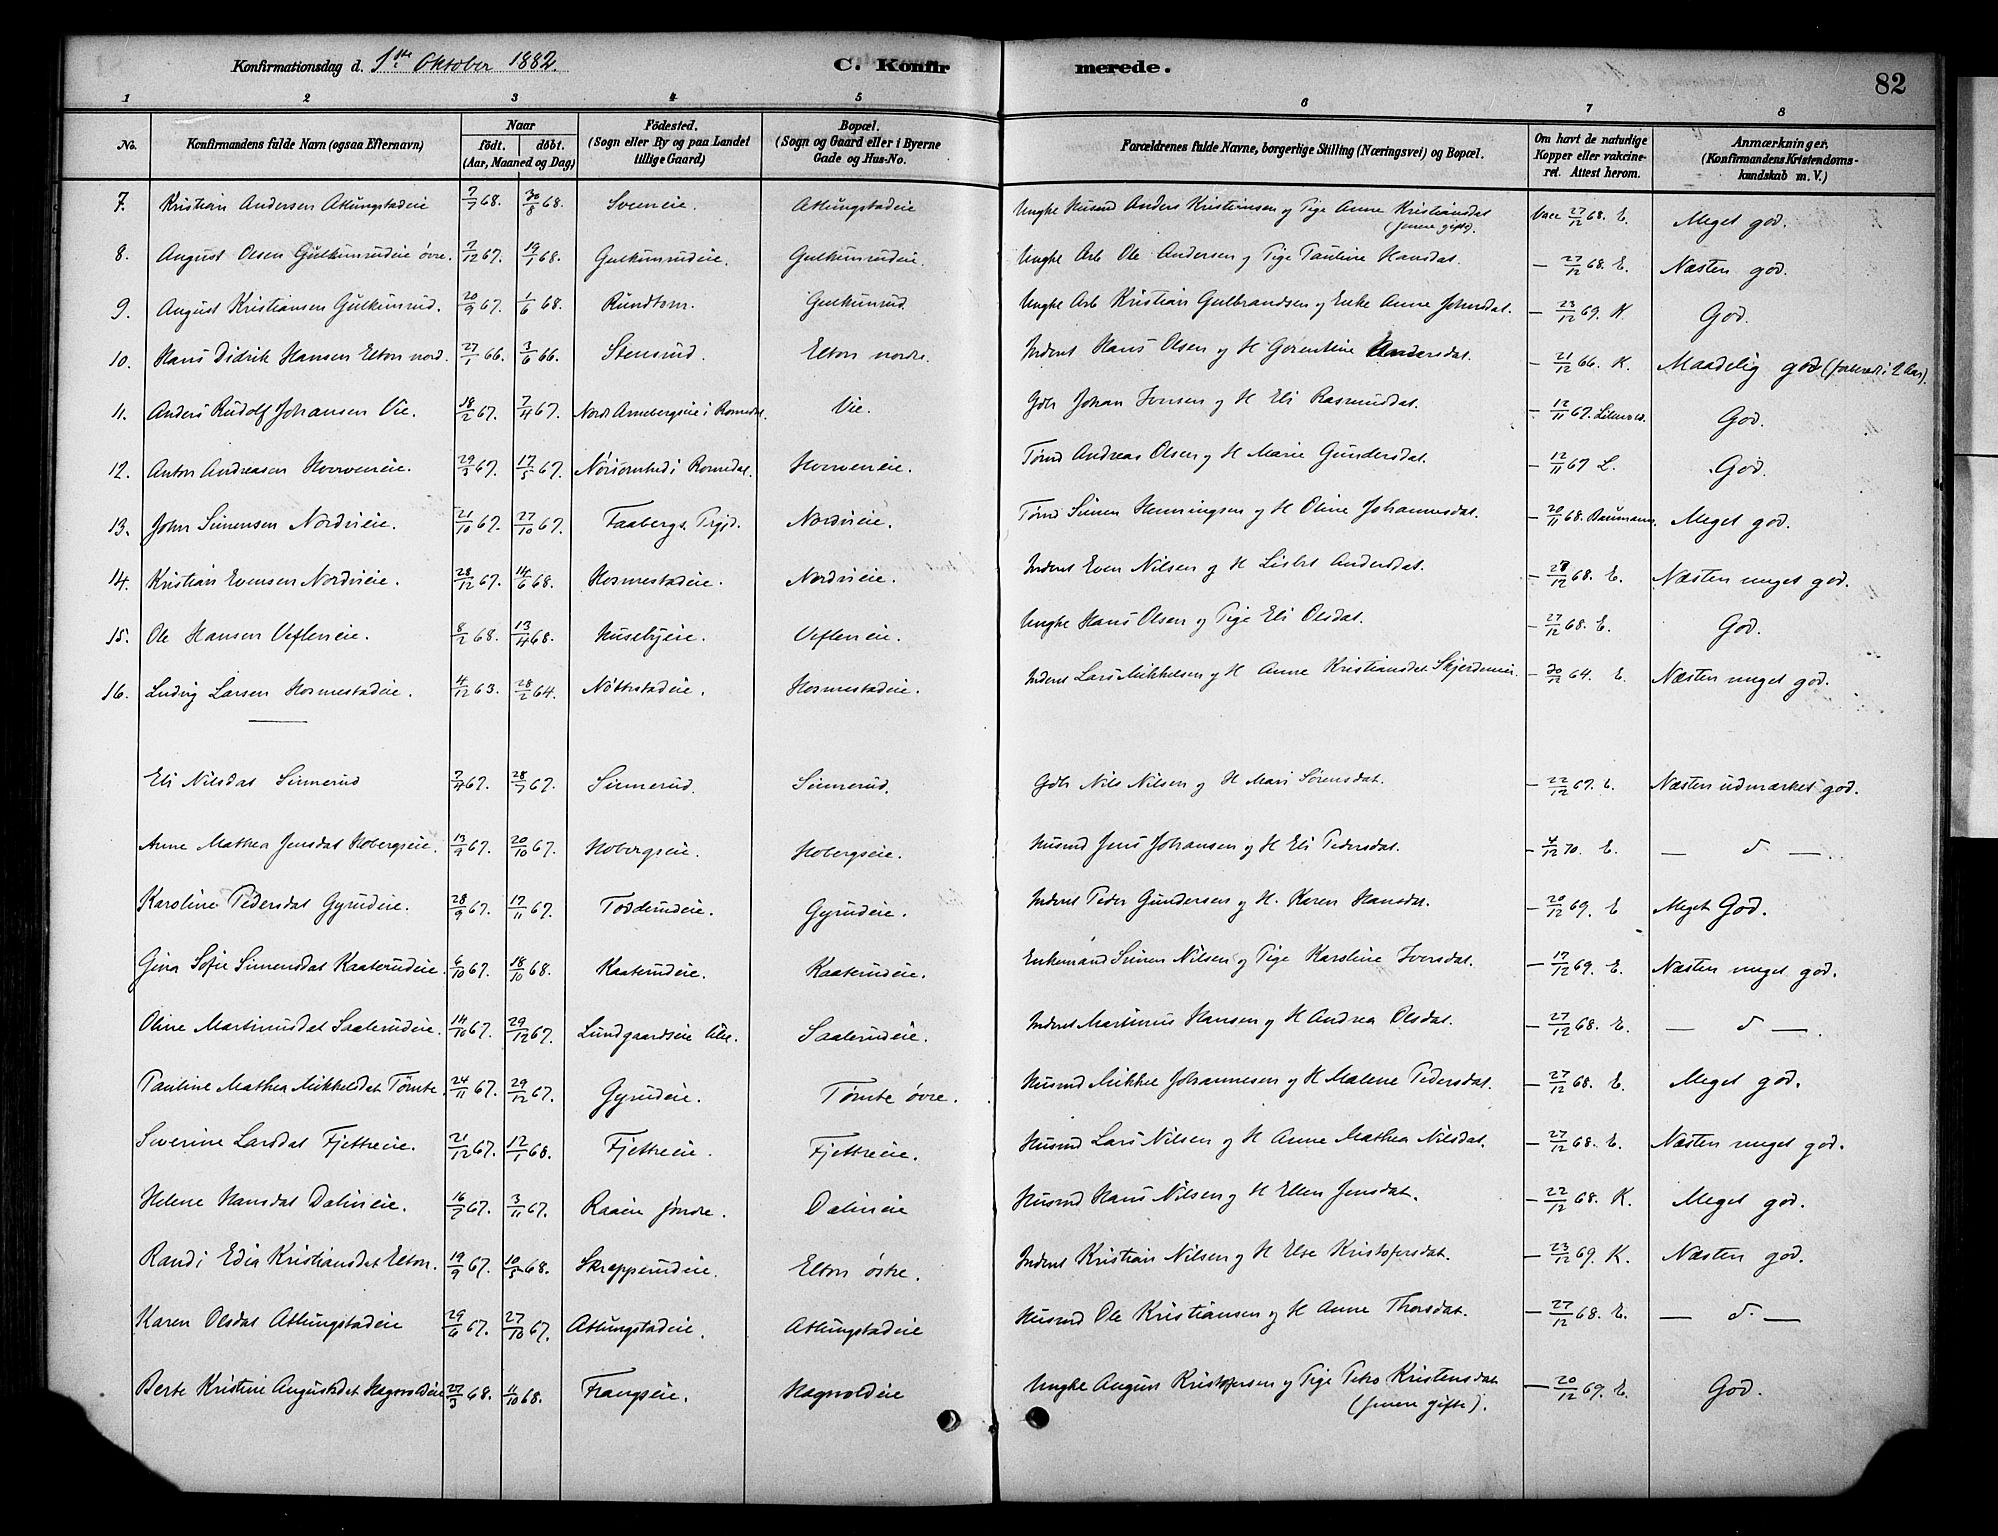 Konfirmationsdag d. 1ste Oktober 1882. C. Konfirmerede. 82
1 2 3 4 5 6 7 8
No. Konfirmandens fulde Navn (ogsaa Efternavn) Naar födt. döbt. (Aar, Maaned og Dag) Födested. (Sogn eller By og paa Landet tillige Gaard) Bopæl. (Sogn og Gaard eller i Byerne Gade og Hus-No. Forældrenes fulde Navne, borgerlige Stilling (Næringsvei) og Bopæl. Om havt de naturlige Kopper eller vakcineret. Attest herom. Anmærkninger. (Konfirmandens Kristendomskundskab m. V.)
7. Kristian Andersen Atlungstadeie 7/7 68. 30/8 68. Sveneie. Atlungstadeie Ungke Husmd Anders Kristiansen og Pige Anne Kristiansdat (senere gifte). Vacc 27/12 68. E. Meget god.
8. August Olsen Gulkunrudeie øvre. 7/12 67. 19/1 68. Gulkunrudeie. Gulkunrudeie. Ungke Arb Ole Andersen og Pige Pauline Hansdat. — 27/12 68. E. Næsten god.
9. August Kristiansen Gulkunrud. 20/9 67. 1/6 68. Rundtom. Gulkunrud. Ungke Arb Kristian Gulbrandsen og Enke Anne Johnsdat. — 23/12 69. K God.
10. Hans Didrik Hansen Elton nord. 27/1 66. 3/6 66. Stensrud. Elton nordre. Inderst Hans Olsen og H Gorentine Andersdat. — 21/12 66. K. Maadelig god
11. Anders Rudolf Johansen Vie. 18/2 67. 7/4 67. Nordr Arnebergseie i Romedal. Vie. Gdbr Johan Iversen og H Eli Rasmusdat. — 12/11 67. God.
12. Anton Andreasen Horverieie. 29/3 67. 17/5 67. Nørsomhed i Romedal. Horveneie. Tømd Andreas Olsen og H Marie Gundersdat. — 12/11 67 L. God.
13. John Simensen Nordvieie. 21/10 67. 27/10 67. Faabergs Prgjd. Nordvieie. Tømd Simen Henningsen og H Oline Johannesdat. — 20/11 68. Baumann. Meget god.
14. Kristian Evensen Nordvieie. 28/12 67. 14/6 68. Hosmestadeie. Nordvieie. Inderst Even Nilsen og H Lisbet Andersdat. — 27/12 68. E. Næsten meget god.
15. Ole Hansen Vefleneie. 8/2 68. 13/4 68. Husebyeie. Vefleneie. Ungke Hans Olsen og Pige Eli Olsdat. — 27/12 68. E. God.
16. Ludvig Larsen Hosmestadeie. 4/12 63. 28/2 64. Nøttestadeie. Hosmestadeie. Inderst Lars Mikkelsen og H Anne Kristiansdat Skjerdeneie. — 20/12 64. E. Næsten meget god.
Eli Nilsdat Sinnerud 7/4 67. 28/7 67. Sinnerud. Sinnerud. Gdbr Nils Nilsen og H Mari Sørensdat. — 22/12 67. E. Næsten udmærket god.
Anne Mathea Jensdat Hobergseie. 13/9 67. 20/10 67. Hobergseie. Hobergseie. Husmd Jens Johansen og H Eli Pedersdat. — 4/12 70. E. — d —.
Karoline Pedersdat Gyrudeie. 28/9 67. 17/11 67. Tødderudeie. Gyrudeie. Inderst Peder Gundersen og H. Karen Hansdat. — 20/12 69. E Meget God.
Gina Sofie Simensdat Kaaterudeie. 6/10 67. 18/10 68. Kaaterudeie. Kaaterudeie. Enkemand Simen Nilsen og Pige Karoline Iversdat. — 17/12 69. E. Næsten meget god.
Oline Martinusdat Saaterudeie. 14/10 67. 29/12 67. Lundgaardseie lille. Saaterudeie. Inderst Martinus Hansen og H Andrea Olsdat. — 27/12 68. E. — d —.
Pauline Mathea Mikkelsdat Tømte. 24/11 67. 29/12 67. Gyrudeie. Tømte øvre. Husmd Mikkel Johannesen og H Malene Pedersdat. — 27/12 68. E. Meget god.
Severine Larsdat Fjettreeie. 21/12 67. 12/1 68. Fjettreeie. Fjettreeie. Husmd Lars Nilsen og H Anne Mathea Nilsdat. — 27/12 68. E. Næsten meget god.
Helene Hansdat Dalineie. 16/7 67. 3/11 67. Raaeie søndre. Dalineie Husmd Hans Nilsen og H Ellen Jensdat. — 22/12 68. K. Meget god.
Randi Edia Kristiansdat Elton. 19/9 67. 10/5 68. Skrepperudeie. Elton østre. Inderst Kristian Nilsen og H Else Kristofersdat. — 23/12 69. K. Næsten god.
Karen Olsdat Atlungstadeie 29/6 67. 27/10 67. Atlungstadeie. Atlungstadeie Husmd Ole Kristiansen og H Anne Thorsdat. — 27/12 68. E. — d. —
Berte Kristine Augustsdat Hagnoldeie 27/3 68. 11/10 68. Frangseie. Hagnoldeie Ungke August Kristofersen og Pige Kristensdat (senere gifte). — 20/12 69. E. God.